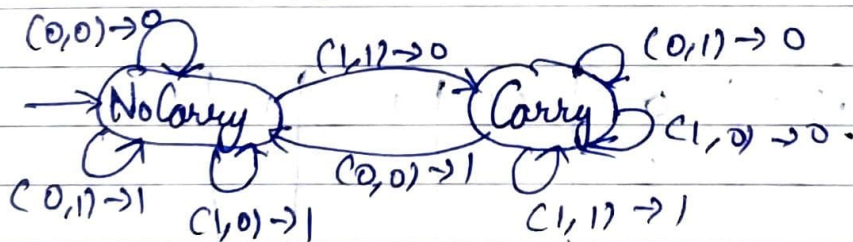 (0,0)→0
(1,1)→0
(0,1)→0
NoCarry
Carry
(1,0)→0
(0,1)→1
(1,0)→1
(0,0)→1
(1,1)→1